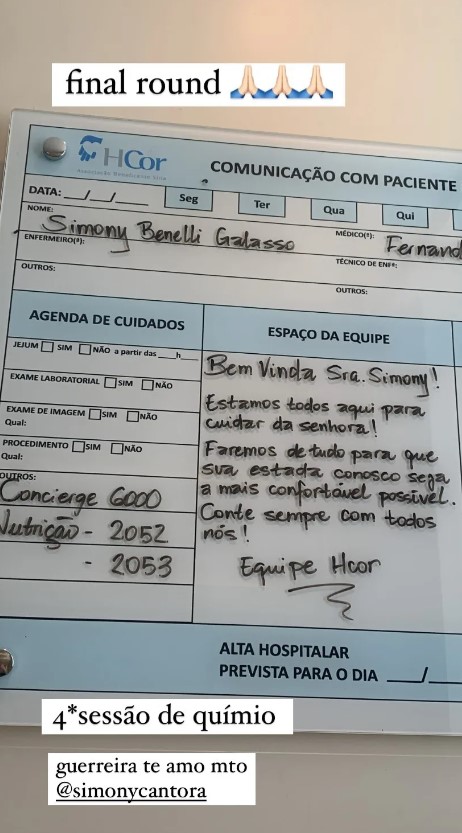 final round 🙏🏻🙏🏻🙏🏻
HCor
Associação Beneficente Síria
COMUNICAÇÃO COM PACIENTE
DATA: __/__/__
Seg
Ter
Qua
Qui
NOME:
Simony Benelli Galasso
MÉDICO(ª):
Fernand
ENFERMEIRO(ª):
TÉCNICO DE ENFª:
OUTROS:
OUTROS:
AGENDA DE CUIDADOS
JEJUM ☐ SIM ☐ NÃO a partir das ____h____
EXAME LABORATORIAL ☐ SIM ☐ NÃO
EXAME DE IMAGEM ☐ SIM ☐ NÃO
Qual:
PROCEDIMENTO ☐ SIM ☐ NÃO
Qual:
OUTROS:
Concierge 6000
Nutrição - 2052
- 2053
ESPAÇO DA EQUIPE
Bem Vinda Sra. Simony!
Estamos todos aqui para
cuidar da senhora!
Faremos de tudo para que
sua estada conosco seja
a mais confortável possível.
Conte sempre com todos
nós!
Equipe Hcor
ALTA HOSPITALAR
PREVISTA PARA O DIA ___/__
4*sessão de químio
guerreira te amo mto
@simonycantora